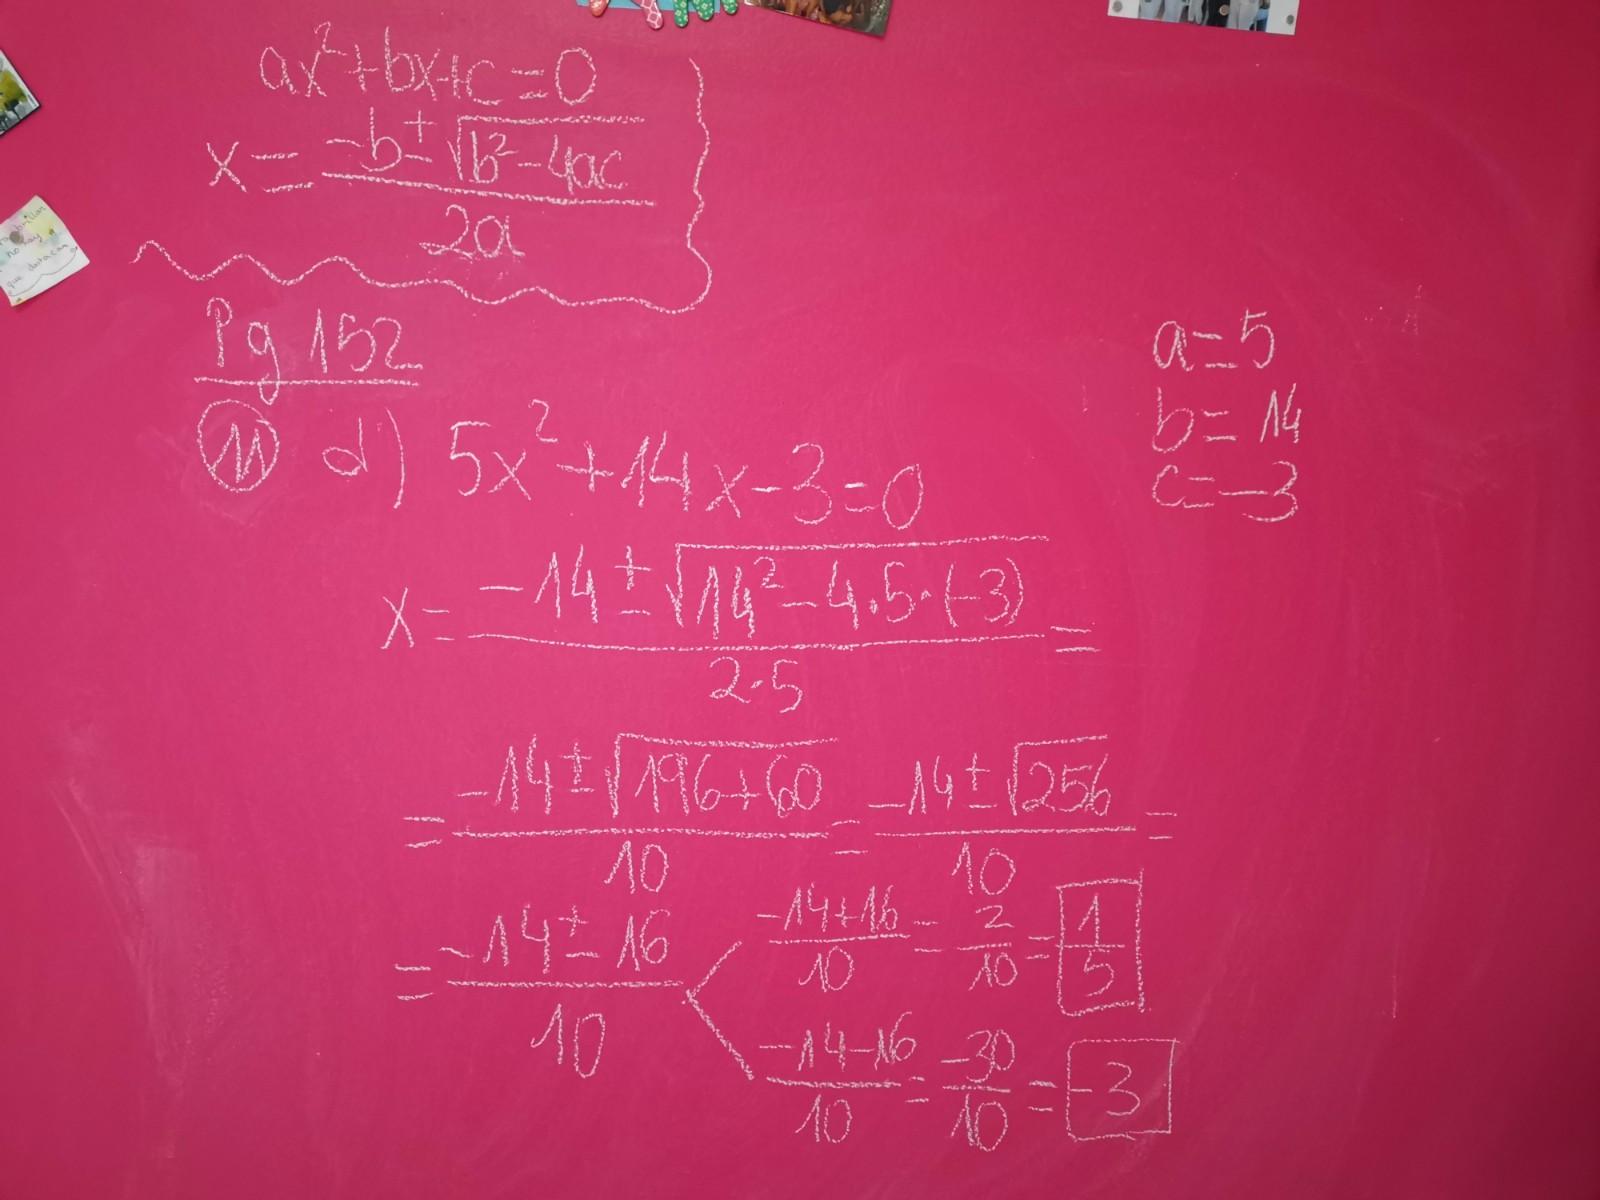 ax²+bx+c=0
x = (-b ± √(b²-4ac)) / 2a
Pg 152
11 d) 5x²+14x-3=0
a=5
b=14
c=-3
x = (-14 ± √(14²-4·5·(-3))) / 2·5 =
= (-14 ± √(196+60)) / 10 = (-14 ± √256) / 10 =
= (-14 ± 16) / 10
(-14+16) / 10 = 2/10 = 1/5
(-14-16) / 10 = -30/10 = -3
brillar
no hay
que